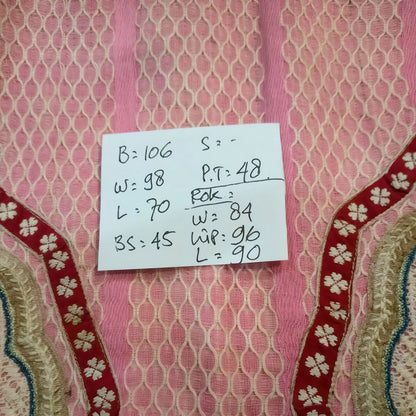 B = 106
W = 98
L = 70
BS = 45
S = -
P.T = 48
Rok =
W = 84
Lūp = 96
L = 90